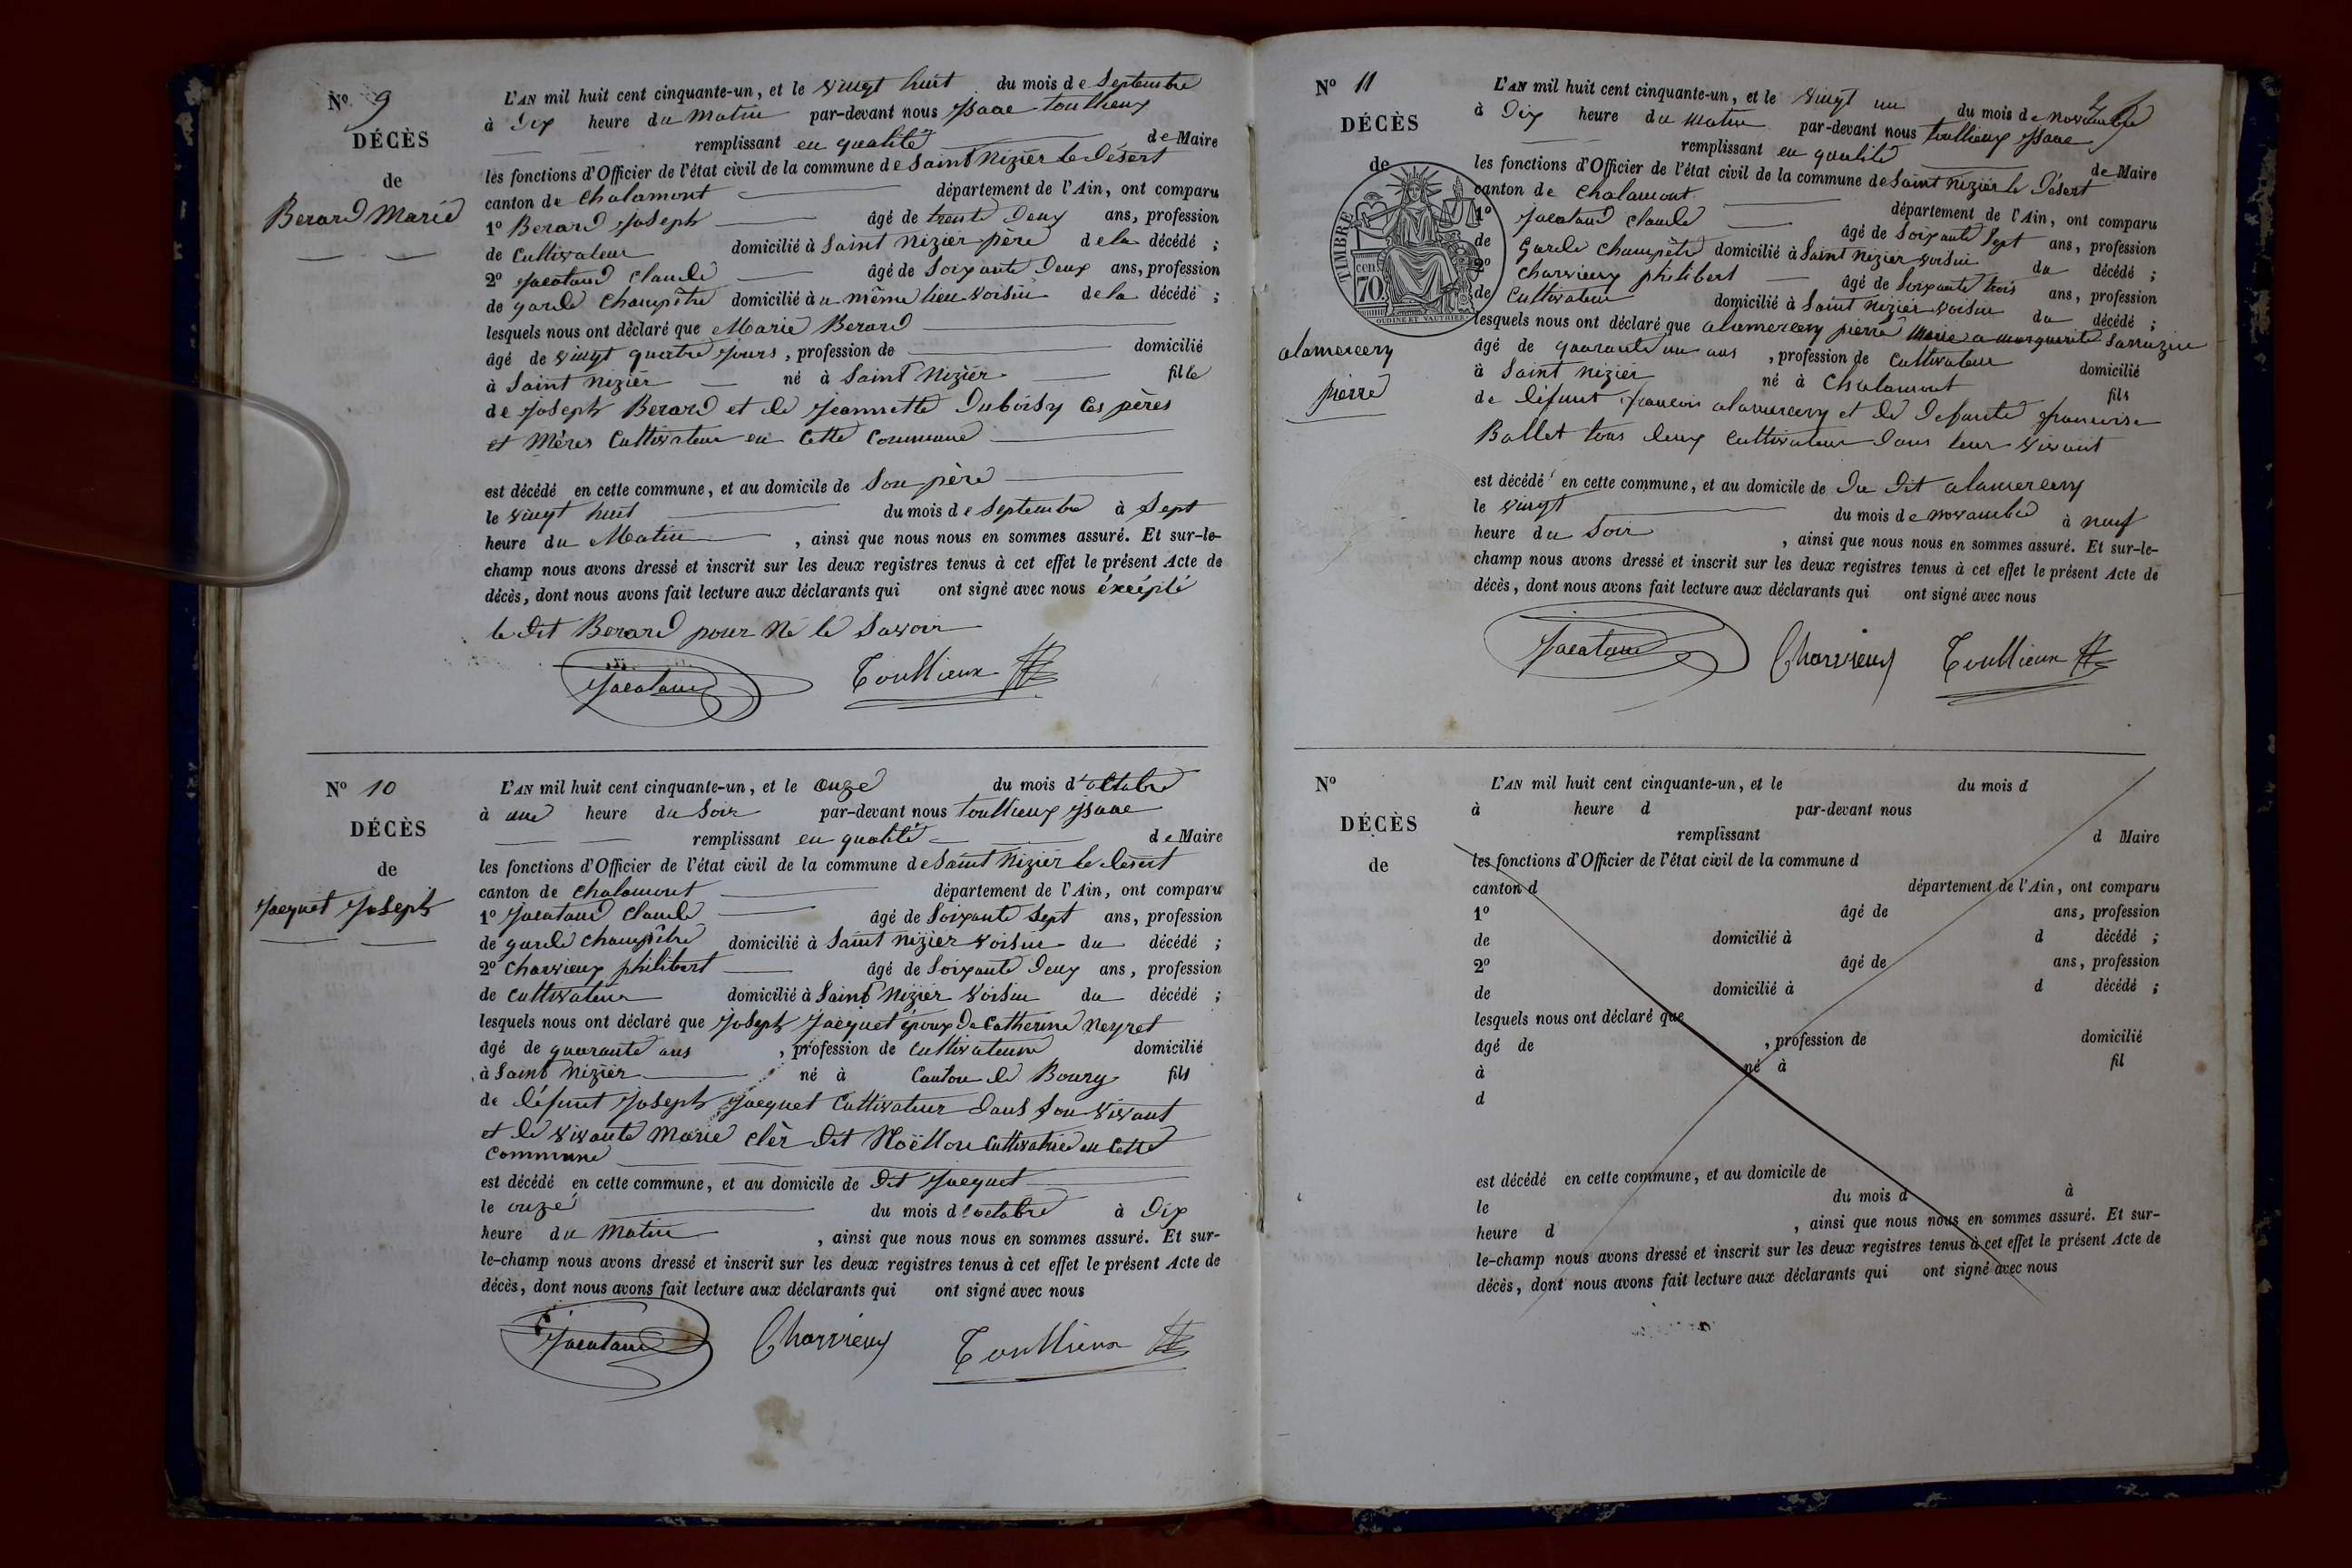 Nº 9
DÉCÈS
de
Berard Marie
L'AN mil huit cent cinquante-un, et le vingt huit du mois de Septembre
à Dix heure du Matin par-devant nous Isaac toullieux
remplissant en qualité de Maire
les fonctions d'Officier de l'état civil de la commune de Saint Nizier le Désert
canton de Chalamont département de l'Ain, ont comparu
1º Berard Joseph âgé de trente Deux ans, profession
de Cultivateur domicilié à Saint Nizier père de la décédé ;
2º Jacataud Claude âgé de Soixante Deux ans, profession
de garde Champêtre domicilié à u même lieu voisin de la décédé ;
lesquels nous ont déclaré que Marie Berard
âgé de vingt quatre Jours, profession de domicilié
à Saint Nizier né à Saint Nizier fille
de Joseph Berard et de Jeannette Duboisy les pères
et Mères Cultivateur en Cette Commune
est décédé en cette commune, et au domicile de Son père
le vingt huit du mois de Septembre à Sept
heure du Matin, ainsi que nous nous en sommes assuré. Et sur-le-
champ nous avons dressé et inscrit sur les deux registres tenus à cet effet le présent Acte de
décès, dont nous avons fait lecture aux déclarants qui ont signé avec nous éxcépté
le dit Berard pour Ne le Savoir
Jacataud Toullieux
Nº 10
DÉCÈS
de
Jacquet Joseph
L'AN mil huit cent cinquante-un, et le onze du mois d'octobre
à une heure du Soir par-devant nous toullieux Isaac
remplissant en qualité de Maire
les fonctions d'Officier de l'état civil de la commune de Saint Nizier le Desert
canton de Chalamont département de l'Ain, ont comparu
1º Jacataud Claude âgé de Soixante Sept ans, profession
de garde Champêtre domicilié à Saint Nizier voisin du décédé ;
2º Charvieux philibert âgé de Soixante Deux ans, profession
de Cultivateur domicilié à Saint Nizier voisin du décédé ;
lesquels nous ont déclaré que Joseph Jacquet époux De Catherine Neyret
âgé de quarante ans, profession de Cultivateur domicilié
à Saint Nizier né à Canton de Bourg fils
de défunt Joseph Jacquet Cultivateur dans Son vivant
et de vivante Marie clèr dit Noëllon Cultivatrice en Cette
Commune
est décédé en cette commune, et au domicile de dit Jacquet
le onze du mois d'octobre à Dix
heure du Matin, ainsi que nous nous en sommes assuré. Et sur-
le-champ nous avons dressé et inscrit sur les deux registres tenus à cet effet le présent Acte de
décès, dont nous avons fait lecture aux déclarants qui ont signé avec nous
Jacataud Charvieux Toullieux
Nº 11
DÉCÈS
de
TIMBRE
cen
70
OUDINE ET VAUTHIER
alamercery
pierre
L'AN mil huit cent cinquante-un, et le vingt un du mois de novembre
à Dix heure du Matin par-devant nous toullieux Isaac
remplissant en qualité de Maire
les fonctions d'Officier de l'état civil de la commune de Saint Nizier le Désert
canton de Chalamont département de l'Ain, ont comparu
1º Jacataud Claude âgé de Soixante Sept ans, profession
de Garde Champêtre domicilié à Saint Nizier voisin du décédé ;
2º Charvieux philibert âgé de Soixante trois ans, profession
de Cultivateur domicilié à Saint Nizier voisin du décédé ;
lesquels nous ont déclaré que alamercery pierre Marié a marguerite Sarrazin
âgé de quarante un ans, profession de Cultivateur domicilié
à Saint Nizier né à Chalamont fils
de Défunt françois alamercery et de Defunte francoise
Ballet tous deux Cultivateur dans leur vivant
est décédé en cette commune, et au domicile de Du Dit alamercery
le vingt du mois de novambre à neuf
heure du Soir, ainsi que nous nous en sommes assuré. Et sur-le-
champ nous avons dressé et inscrit sur les deux registres tenus à cet effet le présent Acte de
décès, dont nous avons fait lecture aux déclarants qui ont signé avec nous
Jacataud Charvieux Toullieux
Nº
DÉCÈS
de
L'AN mil huit cent cinquante-un, et le du mois d
à heure d par-devant nous
remplissant d Maire
les fonctions d'Officier de l'état civil de la commune d
canton d département de l'Ain, ont comparu
1º âgé de ans, profession
de domicilié à d décédé ;
2º âgé de ans, profession
de domicilié à d décédé ;
lesquels nous ont déclaré que
âgé de , profession de domicilié
à né à fil
d
est décédé en cette commune, et au domicile de
le du mois d à
heure d , ainsi que nous nous en sommes assuré. Et sur-
le-champ nous avons dressé et inscrit sur les deux registres tenus à cet effet le présent Acte de
décès, dont nous avons fait lecture aux déclarants qui ont signé avec nous